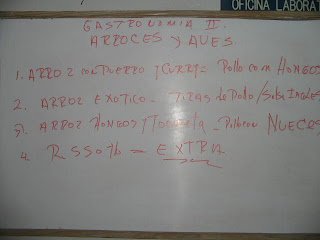 OFICINA LABORAT
GASTRONOMIA II.
ARROCES y AVES
1. ARROZ con PUERRO Y CURRY = Pollo con HONGOS
2. ARROZ EXOTICO - TIRAS de Pollo / Salsa Inglesa
3). ARROZ HONGOS Y TOCINETA - Pollo con NUECES
4. RISSOTTO = EXTRA